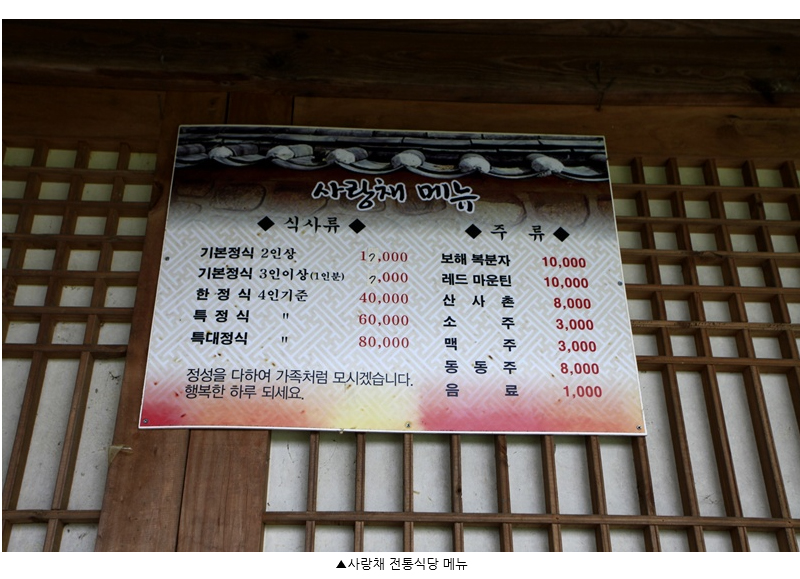 사랑채 메뉴
◆ 식사류 ◆
기본정식 2인상 17,000
기본정식 3인이상(1인분) 7,000
한 정 식 4인기준 40,000
특 정 식 〃 60,000
특대정식 〃 80,000
정성을 다하여 가족처럼 모시겠습니다.
행복한 하루 되세요.
◆ 주 류 ◆
보해 복분자 10,000
레드 마운틴 10,000
산 사 춘 8,000
소 주 3,000
맥 주 3,000
동 동 주 8,000
음 료 1,000
▲사랑채 전통식당 메뉴